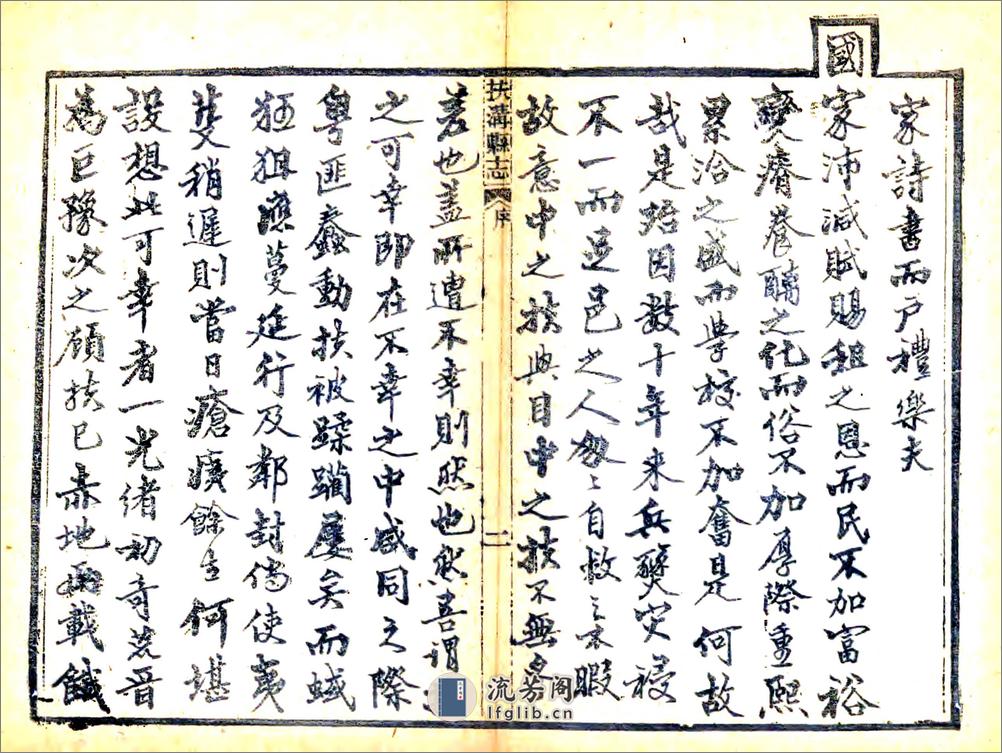 家詩書而戶禮樂夫
國
家沛減賦賜租之恩而民不加富裕
變瘠養醨之化而俗不加厚際重熙
累洽之盛而學校不加奮是何故
哉是蓋因數十年来兵燹灾祲
不一而足邑之人匆匆自救之不暇
故意中之扶與目中之扶不無參
差也蓋所遭不幸則然也然吾謂
之可幸即在不幸之中咸同之際
粤匪蠢動扶被蹂躪屢矣而蜮
狂狙應蔓延行及鄰封倘使夷
芟稍遲則當日瘡痍餘生何堪
設想此可幸者一光緒初奇荒晋
為巨豫次之顧扶已赤地兩載餓
扶溝縣志
序
二
流芳阁
lfglib.cn